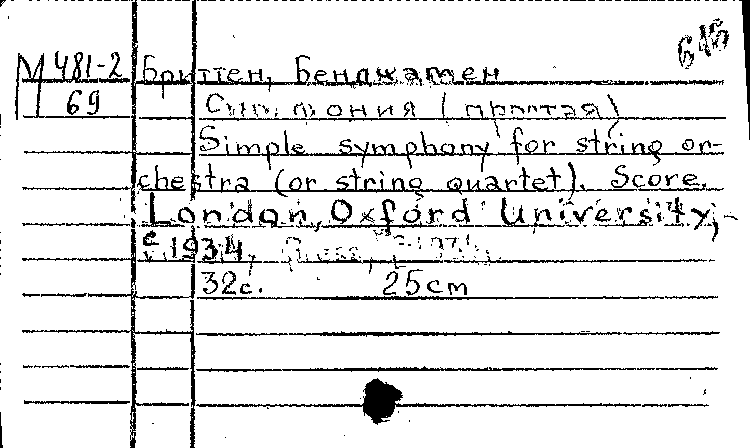 645
М 481-2 Бриттен, Бенджамен
69 Симфония (простая)
Simple symphony for string or-
chestra (or string quartet). Score.
London, Oxford University,
c.1934,
32с. 25cm